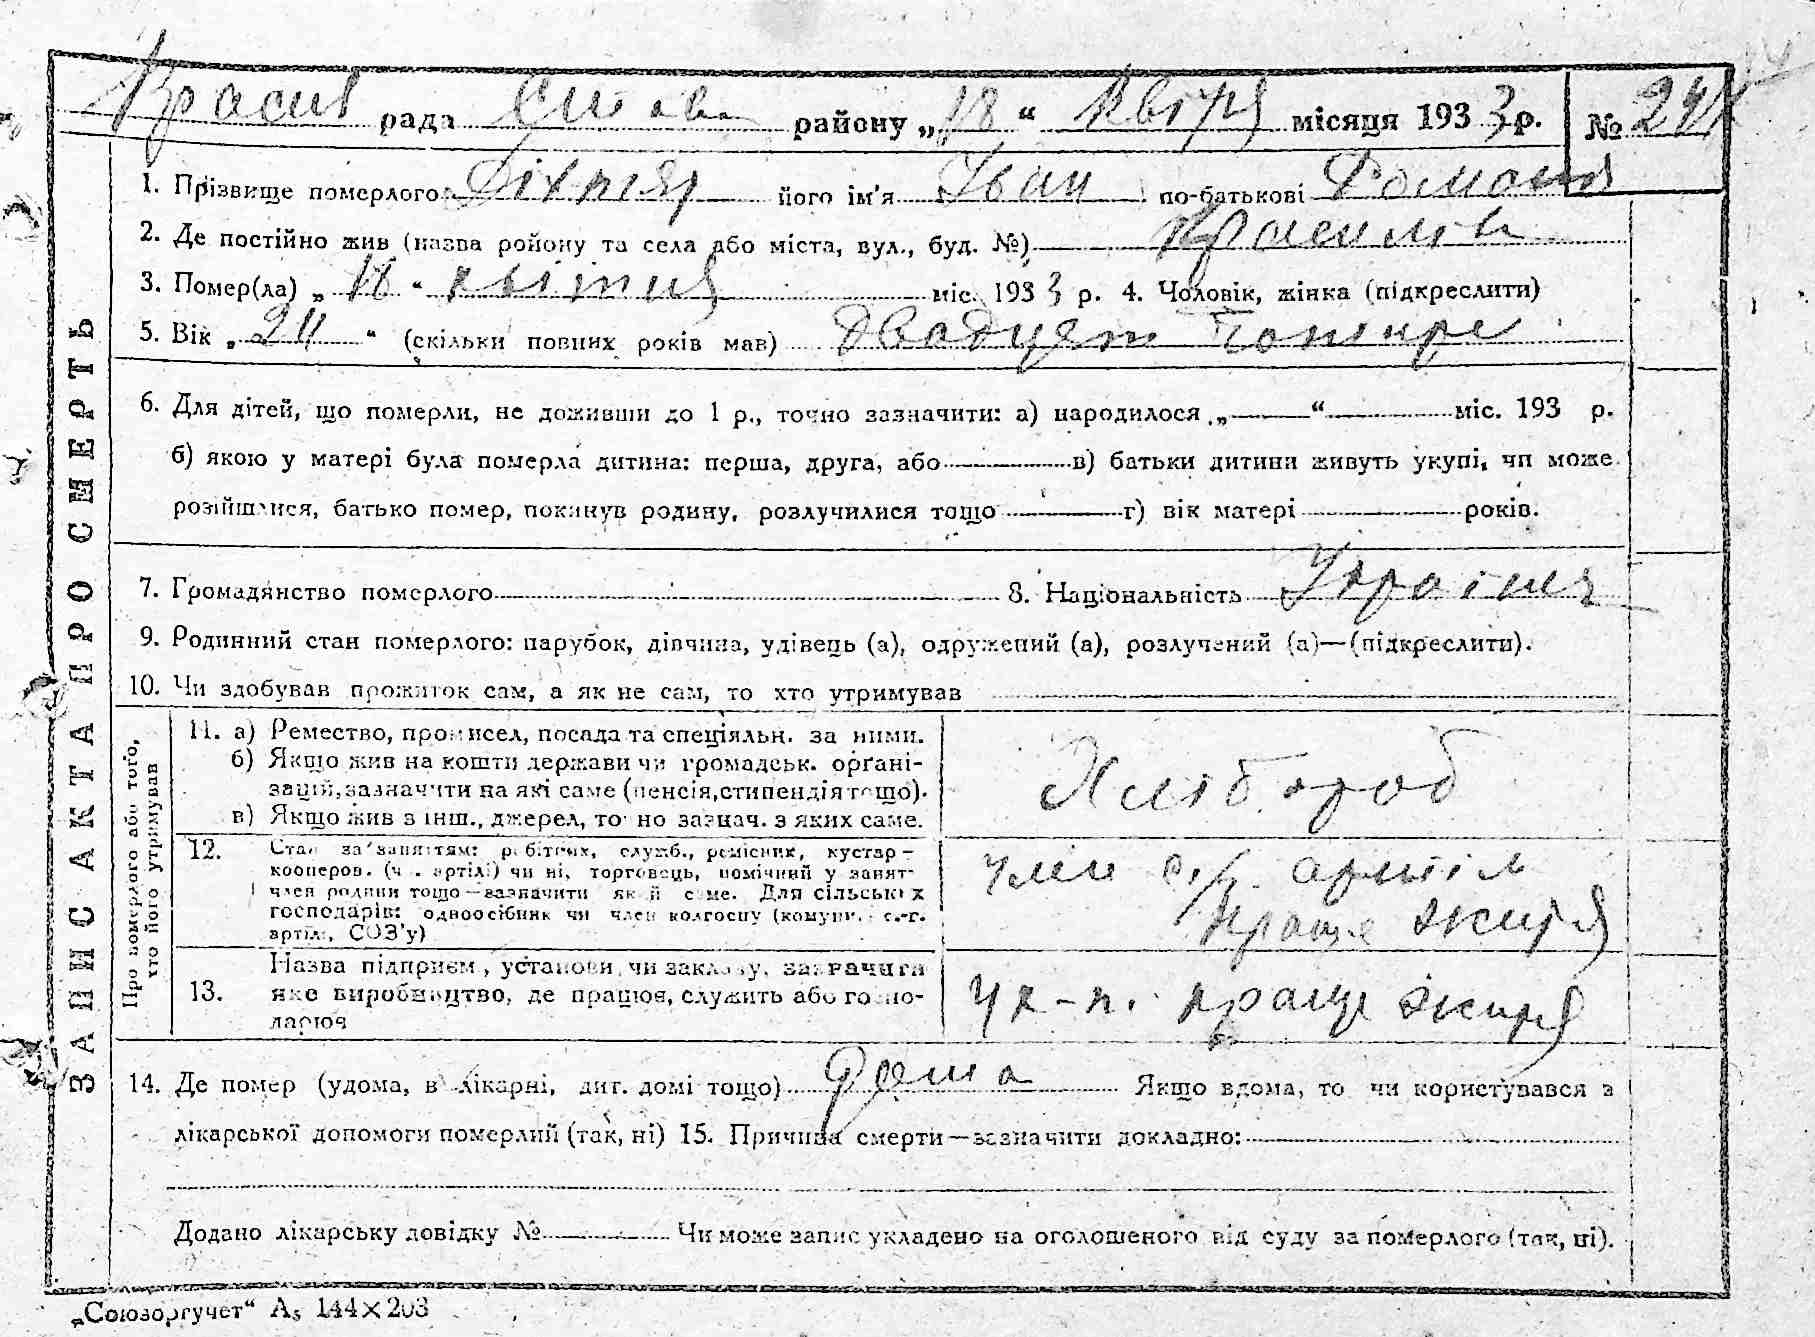 рада района „18“ місяця 1933 р. № 24
1. Прізвище померлого його ім'я Іван по-батькові
2. Де постійно жив (назва району та села або міста, вул., буд. №)
3. Помер(ла) „18“ квітня міс. 1933 р. 4. Чоловік, жінка (підкреслити)
5. Вік „24“ (скільки повних років мав) Двадцет
6. Для дітей, що померли, не доживши до 1 р., точно зазначити: а) народилося „ “ міс. 193 р.
б) якою у матері була померла дитина: перша, друга, або в) батьки дитини живуть укупі, чи може
розійшлися, батько помер, покинув родину, розлучилися тощо г) вік матері років.
7. Громадянство померлого 8. Національність
9. Родинний стан померлого: парубок, дівчина, удівець (а), одружений (а), розлучений (а)—(підкреслити).
10. Чи здобував прожиток сам, а як не сам, то хто утримував
ЗАПИС АКТА ПРО СМЕРТЬ
Про померлого або того,
хто його утримував
11. а) Ремество, промисел, посада та спеціяльн. за ними.
б) Якщо жив на кошти держави чи громадськ. органі-
зацій, зазначити на які саме (пенсія, стипендія тощо).
в) Якщо жив з інш., джерел, точно зазнач. з яких саме.
Хлібороб
12. Стан за заняттям: робітник, служб., ремісник, кустар-
кооперов. (чл. артілі) чи ні, торговець, помічний у занят-
член родини тощо—зазначити який саме. Для сільських
господарів: одноосібник чи член колгоспу (комуни, с.-г.
артілі, СОЗ'у)
член с/г. артіл
краще життя
13. Назва підприєм., установи, чи закладу, зазначити
яке виробництво, де працює, служить або госпо-
дарює
краще життя
14. Де помер (удома, в лікарні, дит. домі тощо) дома Якщо вдома, то чи користувався з
лікарської допомоги померлий (так, ні) 15. Причина смерти—зазначити докладно:
Додано лікарську довідку № Чи може запис укладено на оголошеного від суду за померлого (так, ні).
„Союзоргучет“ А₅ 144×203